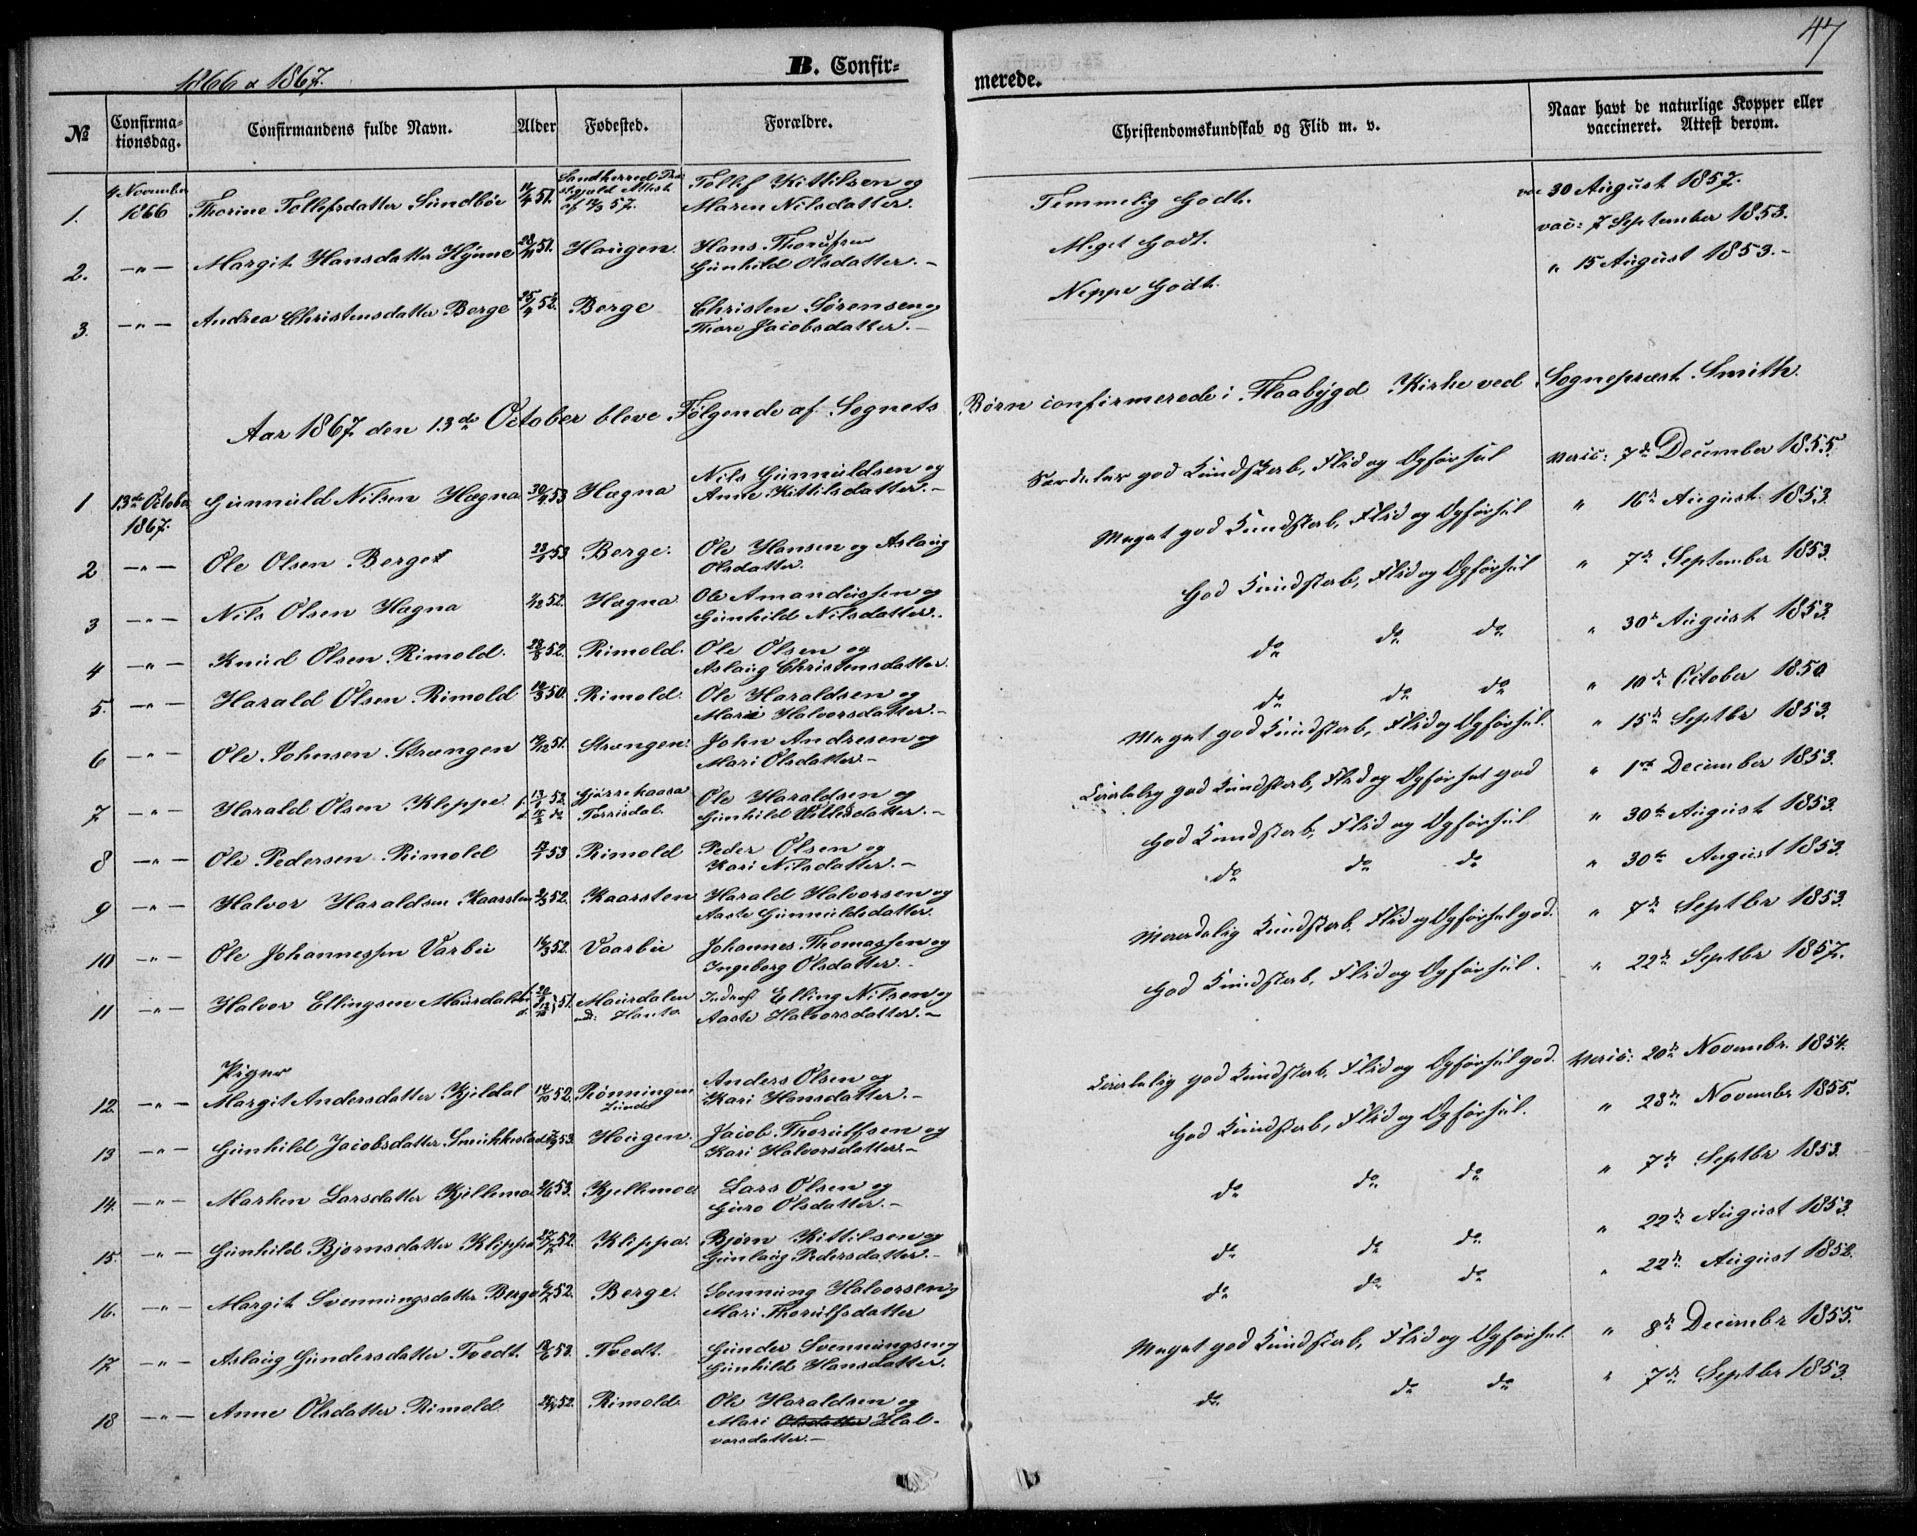 47
1866 & 1867.
B. Confirmerede.
№ Confirmationsdag. Confirmandens fulde Navn. Alder Fødested. Forældre. Christendomskundskab og Flid m. v. Naar havt de naturlige Kopper eller vaccineret. Attest derom.
1. 4. November 1866 Thorine Tollefsdatter Sundbøe 51. Tollef Kittilsen og Maren Nilsdatter. Temmelig Godt. vac 30 August 1857.
2. —"— Margit Hansdatter 51. Haugen. Hans Thorufsen Gunhild Olsdatter.— Meget Godt. vac: 7 September 1853.
3. —"— Andrea Christensdatter Berge 25/4 52. Berge Christen Sørensen og Thore Jacobsdatter.— Neppe Godt. " 15 August 1853.—
Aar 1867 den 13de October bleve Følgende af Sognets Børn confirmerede i Flaabygd Kirke ved Sognepræst Smith.
1 13de October 1867. Gunnuld Nilsen Hægna 53 Hægna Nils Gunnuldsen og Anne Kittilsdatter.— Særdeles god Kundskab, Flid og Opførsel Vacc: 7de December 1855.
2 —"— Ole Olsen Berget 53 Berge. Ole Hansen og Aslaug Olsdatter. Meget god Kundskab, Flid og Opførsel " 16de August 1853
3 —"— Nils Olsen Hægna 52. Hægna Ole Amandussen og Gunhild Nilsdatter. God Kundskab, Flid og Opførsel " 7de September 1853.
4 —"— Knud Olsen Rimold. 52. Rimold. Ole Olsen og Aslaug Christensdatter. do do do " 30te August 1853.
5. —"— Harald Olsen Rimold 50. Rimold. Ole Haraldsen og Mari Halvorsdatter.— do do do " 10de October 1850
6 —"— Ole Johnsen Strængen 51. Strængen. John Andresen og Mari Olsdatter.— Meget god Kundskab, Flid og Opførsel. " 15de Septbr 1853.
7. —"— Harald Olsen Kleppe. 52. Torrisdal. Ole Haraldsen og Gunhild datter.— god Kundskab, Flid og Opførsel god " 1ste December 1853.
8 —"— Ole Pedersen Rimold 53 Rimold Peder Olsen og Kari Nilsdatter.— God Kundskab, Flid og Opførsel " 30te August 1853.
9 —"— Halvor Haraldsen Kaarsten 52. Kaarsten Harald Halvorsen og Aaste Gunnuldsdatter. do do do " 30te August 1853.
10 —"— Ole Johannessen Varbu 52. Vaarbu Johannes Thomassen og Ingeborg Olsdatter. Kundskab, Flid og Opførsel god. " 7de Septbr 1853.
11 —"— Halvor Ellingsen Maurdalen 51. Maurdalen Elling Nilsen og Aaste Halvorsdatter.— God Kundskab, Flid og Opførsel. " 22de Septbr 1857.
Piger
12. —"— Margit Andersdatter Kjeldal 52. Rønningen Anders Olsen og Kari Hansdatter.— god Kundskab, Flid og Opførsel god. Vacc: 20de Novembr. 1854.
13 —"— Gunhild Jacobsdatter Smukkestad 53. Hougen. Jacob Thorulfsen og Kari Halvorsdatter.— God Kundskab, Flid og Opførsel. " 28de Novembr 1855.
14. —"— Marken Larsdatter Kjellemo 53. Kjellemoe Lars Olsen og Guro Olsdatter.— do do do " 7de Septbr 1853.
15. —"— Gunhild Bjørnsdatter Klippa 52. Klippa. Bjørn Kittilsen og Gunlaug Pedersdatter.— do do do " 22de August 1853.
16. —"— Margit Svennungsdatter Berge 52. Berge. Svennung Halvorsen og Mari Thorulfsdatter do do do " 22de August 1852.
17 —"— Aslaug Gundersdatter Tvedt. 53. Tvedt. Gunder Svennungsen og Gunhild Hansdatter. Meget god Kundskab, Flid og Opførsel. " 8de Decembr 1855.
18 —"— Anne Olsdatter Rimold. 52. Rimold. Ole Haraldsen og Mari Halvorsdatter.— do do do " 7de Septbr 1853.